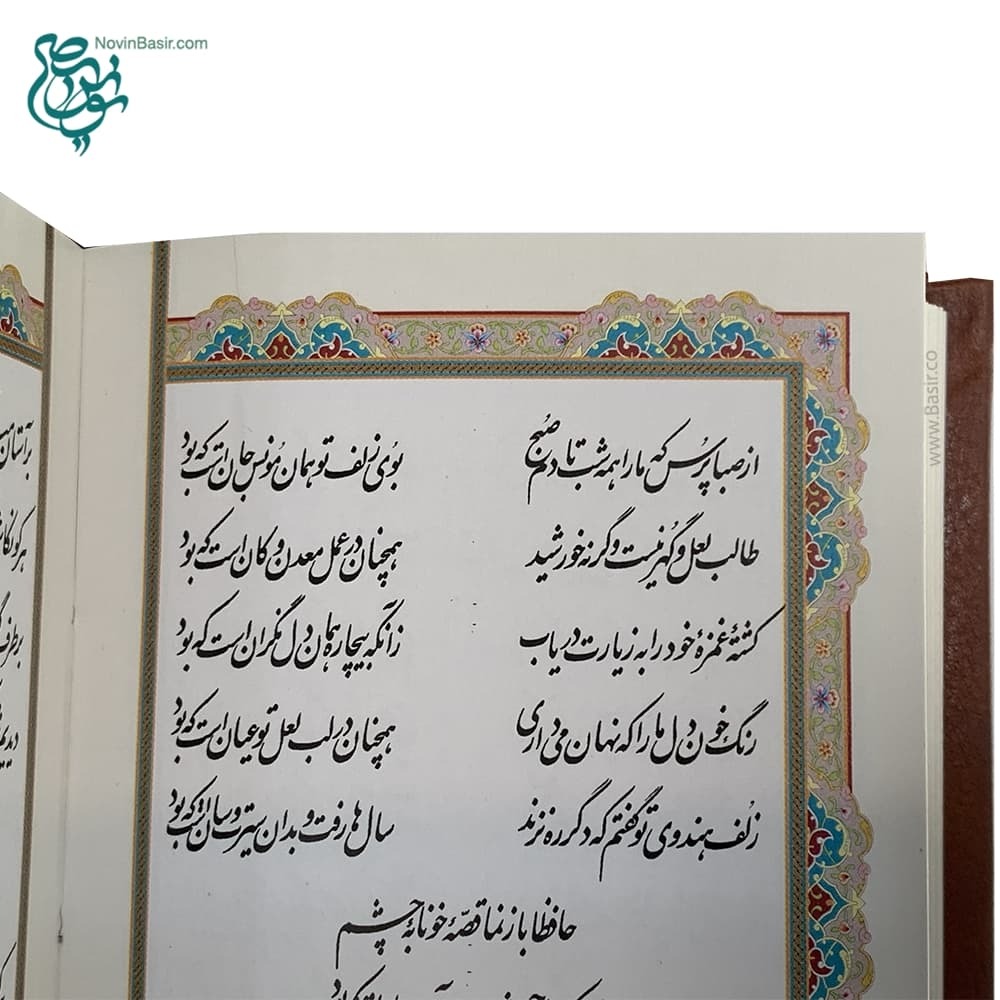 NovinBasir.com
www.Basir.co
از صبا پرس که ما را همه شب تا دم صبح بوی زلف تو همان مونس جان است که بود
طالب لعل و گهر نیست وگرنه خورشید همچنان در عمل معدن و کان است که بود
کشتهٔ غمزهٔ خود را به زیارت دریاب زانکه بیچاره همان دل نگران است که بود
رنگ خون دل ما را که نهان می داری همچنان در لب لعل تو عیان است که بود
زلف هندوی تو گفتم که دگر ره نزند سال ها رفت و بدان سیرت و سان است که بود
حافظا باز نما قصهٔ خونابهٔ چشم